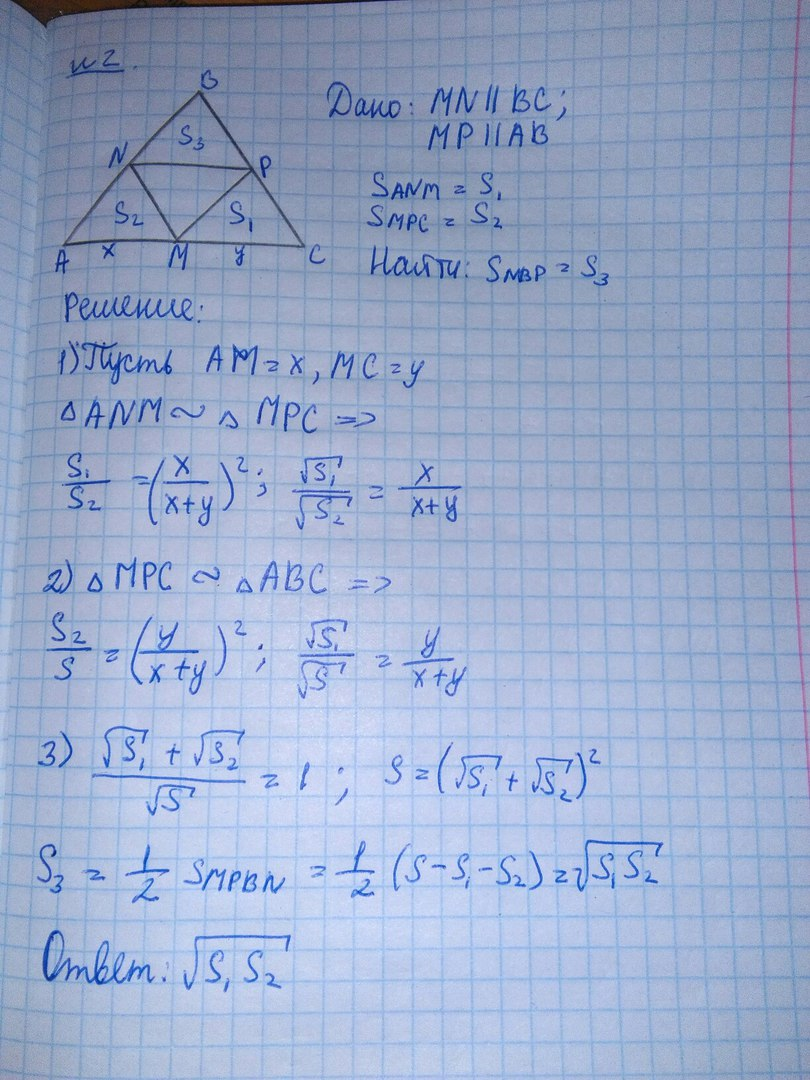 №2.
B
Дано: MN || BC;
MP || AB
N S₃ P
S_ANM = S₁
S₂ S₁
S_MPC = S₂
A x M y C
Найти: S_NBP = S₃
Решение:
1) Пусть AM = x, MC = y
△ANM ~ △MPC =>
S₁/S₂ = (x/(x+y))²; √S₁/√S₂ = x/(x+y)
2) △MPC ~ △ABC =>
S₂/S = (y/(x+y))²; √S₁/√S = y/(x+y)
3) (√S₁ + √S₂)/√S = 1; S = (√S₁ + √S₂)²
S₃ = 1/2 S_MPBN = 1/2 (S - S₁ - S₂) = √S₁S₂
Ответ: √S₁S₂